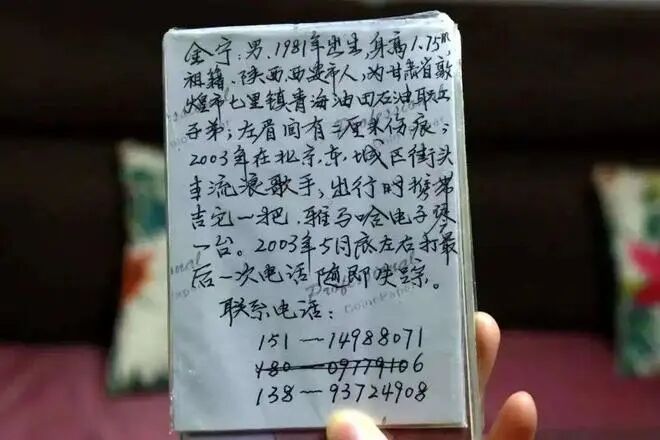 金宁:男、1981年出生,身高1.75m,
祖籍、陕西、西安市人,为甘肃省敦
煌市七里镇青海油田石油职工
子弟;左眉间有二厘米伤痕;
2003年在北京、东城区街头
生流浪歌手,出行时携带
吉它一把、雅马哈电子琴
一台。2003年5月底左右打最
后一次电话随即失踪。
联系电话:
151—14988071
180—09779106
138—93724908
Professional
Color Paper
Professional
Color Paper